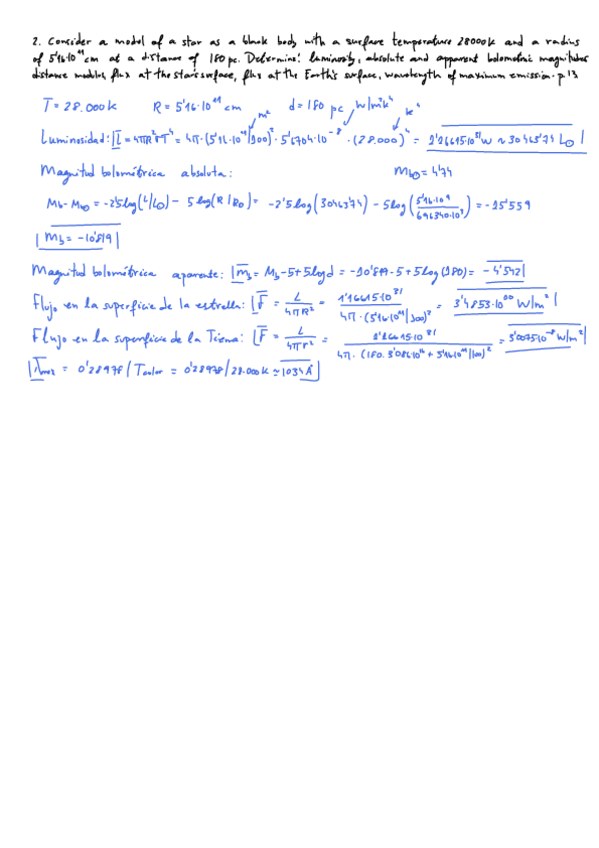 2. Consider a model of a star as a blank body with a surface temperature 28000 K and a radius
of 5'16·10¹¹ cm at a distance of 180 pc. Determine: luminosity, absolute and apparent bolometric magnitudes
distance modulus, flux at the star's surface, flux at the Earth's surface, wavelength of maximum emission. p 13
T = 28.000 K R = 5'16·10¹¹ cm d = 180 pc W/m²K⁴
m² K⁴
Luminosidad: L = 4πR²σT⁴ = 4π·(5'16·10¹¹/100)²·5'6704·10⁻⁸·(28.000)⁴ = 1'16615·10³¹ W ≈ 30463'74 L⊙
Magnitud bolométrica absoluta: M_b⊙ = 4'74
M_b - M_b⊙ = -2'5 log(L/L⊙) - 5 log(R/R⊙) = -2'5 log(30463'74) - 5 log(5'16·10⁹/696340·10³) = -15'559
M_b = -10'819
Magnitud bolométrica aparente: m_b = M_b - 5 + 5 log d = -10'819 - 5 + 5 log(180) = -4'542
Flujo en la superficie de la estrella: F = L/4πR² = 1'16615·10³¹/4π·(5'16·10¹¹/100)² = 3'4853·10¹⁰ W/m²
Flujo en la superficie de la Tierra: F = L/4πr² = 1'16615·10³¹/4π·(180·3'086·10¹⁶ + 5'16·10¹¹/100)² = 3'0075·10⁻⁸ W/m²
λmax = 0'28978/Tcolor = 0'28978/28.000 K ≈ 1034 Å